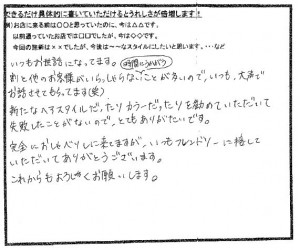 できるだけ具体的に書いていただけるとうれしさが倍増します！
例）お店に来る前は〇〇と思っていたのに、今は△△です。
以前通っていたお店では□□でしたが、今は◇◇です。
今回の施術は××でしたが、今後は～～なスタイルにしたいと思います。・・・など
いつもお世話になってます。
割と他のお客様がいらっしゃらないことが多いので、いつも、大声で
お話させてもらってます(笑)
新たなヘアスタイルだったりカラーだったりを勧めていただいて
失敗したことがないので、とてもありがたいです。
完全におしゃべりしに来てますが、いつもフレンドリーに接して
いただいてありがとうございます。
これからもよろしくお願いします。